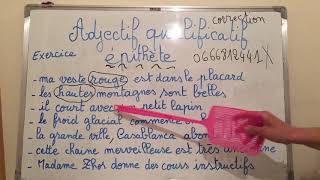 correction
Adjectif qualificatif
épithète 0666812441
Exercice
- ma veste rouge est dans le placard
- les hautes montagnes sont belles
- il court avec un petit lapin
- le froid glacial commence
- la grande ville, Casablanca
- cette chaine merveilleuse est très ancienne
- Madame donne des cours instructifs